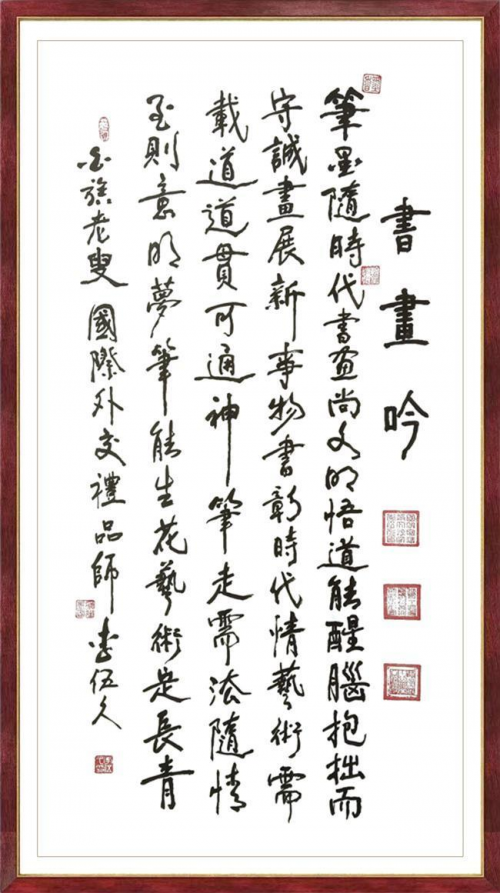 書畫吟
筆墨隨時代書画尚文明悟道能醒腦抱拙而
守誠畫展新事物書彰時代情藝術需
載道道貫可通神筆走需法隨情
至則意明夢筆能生花藝術是長青
白族老叟 國際外交禮品師 李伍久